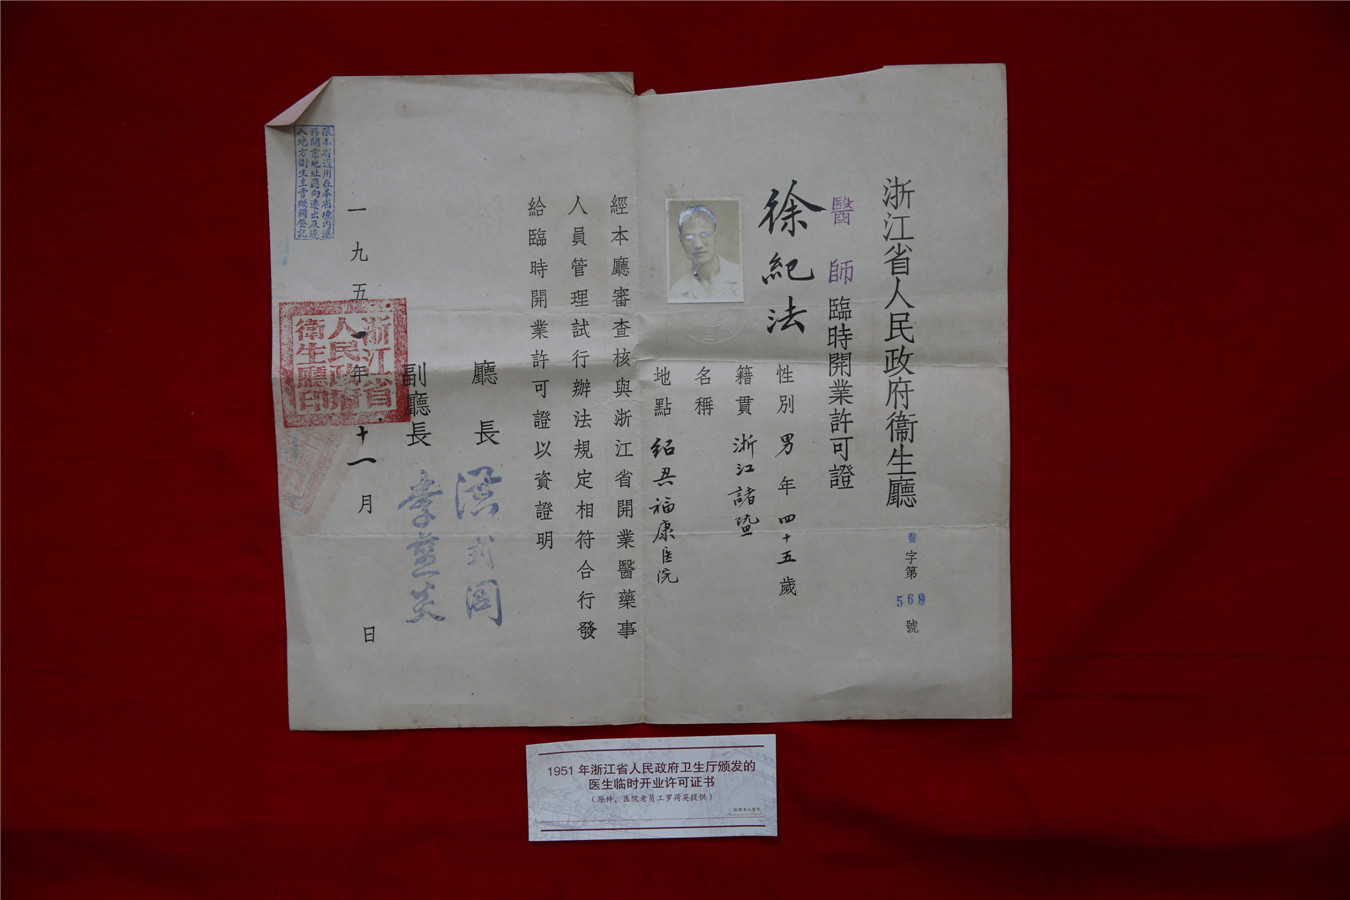 浙江省人民政府衞生廳
字第
569
號
醫師臨時開業許可證
徐紀法
性別 男 年 四十五 歲
籍貫 浙江諸暨
名稱
地點 紹興福康医院
經本廳審查核與浙江省開業醫藥事
人員管理試行辦法規定相符合行發
給臨時開業許可證以資證明
廳長
副廳長
一九五一年十一月 日
浙江省
人民政府
衞生廳印
1951 年浙江省人民政府卫生厅颁发的
医生临时开业许可证书
（原件，医院老员工罗荷英提供）